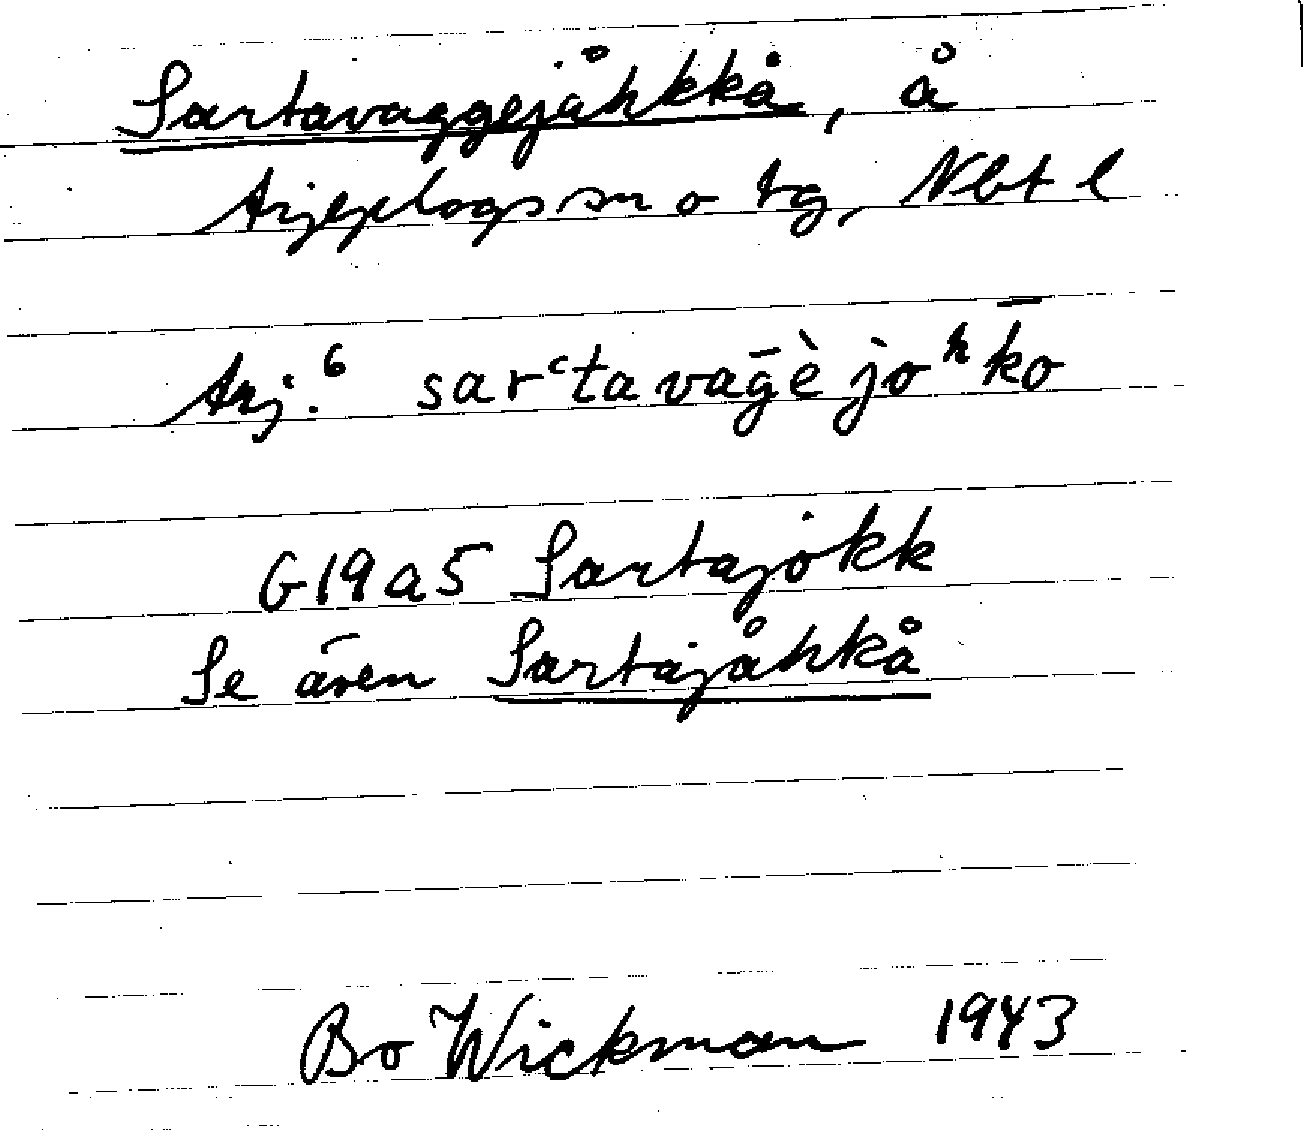 Sartavaggejåhkkå, å
Arjeplogs sn o tg, Nbt l
Arj.⁶ sarᶜtavaḡèjòʰk̄o
G19a5 Sartajokk
Se även Sartajåhkå
Bo Wickman 1943